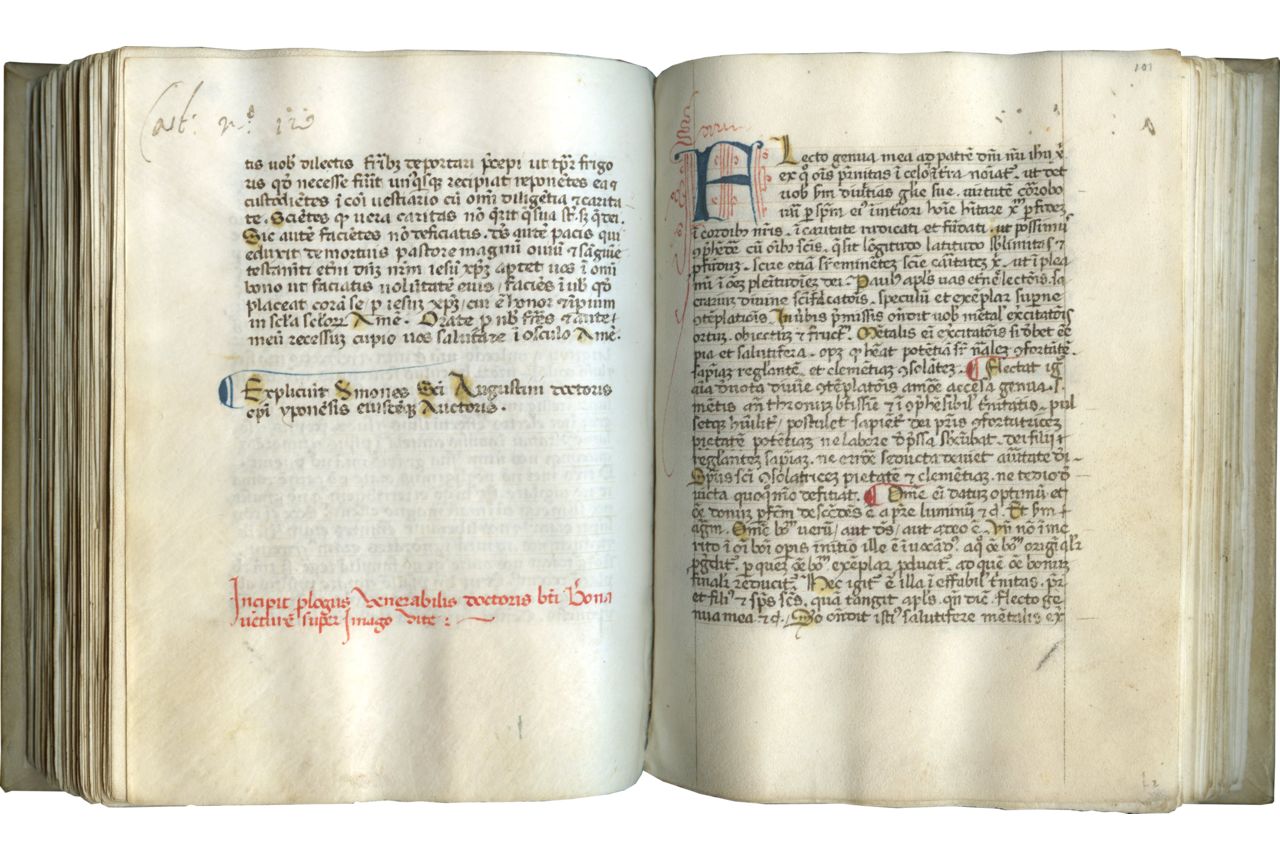 Cart: n.º 120
tis uob̄ dilectis fr̄ibȝ deportari p̄cepi ut tp̄r frigo
ris qđ necesse fūīt un᷒qsq recipiat reponētes ea q
custodiētes ī cōi vestiario cū om̄i diligētia ⁊ carita
te. Sciētes qꝫ uera caritas nō q̄rit q̄ sua st̄. sꝫ q̄ dei.
Sic autē faciētes nō deficiatis. dꝰ autē pacis qui
eduxit de mortuis pastorē magnū ouiū ⁊ sāguīe
testamēti et̄ni dn̄m nr̄m iesū xp̄ꝫ aptet uos ī om̄i
bono ut faciatis uolūtatē eius, faciēs ī uob̄ qđ
placeat corā se ꝑ iesum xp̄ꝫ, cui ē honor ⁊ īꝑium
in sc̄la sc̄loꝝ Amē. Orate ꝑ nob̄ fr̄es ⁊ ante
meū recessum cupio uos salutare ī osculo Amē.
Expliciūt Smones Sc̄i Augustini doctoris
ep̄i yponēsis eiusdēqꝫ Auctoris.
Incipit ꝓlogus Venerabilis doctoris bt̄i Bona
uēture super Imago uite :
101
Flecto genua mea ad patrē dn̄i nr̄i ihu x̄
ex q̊ oīs pr̄nitas ī celo ⁊ ī tr̄a noīat᷑. ut det
uob̄ sm̄ diuitias gl̄ie sue. uirtutē corrobo
rari ꝑ sp̄m eiꝰ ī interiori hoīe h̄itare x̄ᵐ ꝑ fidez
ī cordibꝰ nr̄is. ī caritate radicati et fūdati. ut possitis
ꝯp̄hēdē cū oībꝰ sc̄is. q̄ sit lōgitudo latitudo sb̄limitas ⁊
ꝓfūduꝫ. scire etiā sr̄eminētez sciē caitatez x̄. ut īplea
mī ī oēꝫ plenitudīeꝫ dei. Paulꝰ apl̄s uas et̄ne lectoīs. sa
crariuꝫ diuine sc̄ifīcatoīs. speculū et exēplar supne
ꝯtēplatiōis. In ūbis p̄missis oñdit uob̄ mētal̄ excitatōīs
ortuꝫ. obiectuꝫ ⁊ fructū. Mētalis ei excitatōis si dꝫ et ēē
pia et salutifera. opꝫ qꝫ h̄eat potētiā
sapiāꝫ regl̄antē. et clemētiāꝫ ꝯsolātez. Flectat ig᷑
aīa deuota diuīe ꝯtēplatōīs amōē accēsa genua.
mētis an̄ thronuꝫ bt̄issīe ⁊ īꝯp̄hēsibil᷑ t̄nitatis. pul
setqꝫ hūilit᷑, postulet sapiēt᷑ dei pr̄is ꝯfortatricez
pietatē potētiaꝫ ne labore dep̄ssa sb̄cūbat. dei filij
regl̄antez sapiaꝫ. ne errōe seducta deuiet
Spūs sc̄i ꝯsolatricez pietatē ⁊ clemētiaꝫ. ne tedio đ
uicta quoqꝫ mō deficiat. Omē ei datuꝫ optimū et
oē donuꝫ pf̄cm descēdēs ē a pr̄e luminū ⁊ c̄.
Omē boᵐ uerū, aut dꝰ, aut a deo ē.
rito ī oī boni opis initio ille ē īuocādꝰ. a quo oē boᵐ
per quez oē boᵐ exēplar ꝓducit᷑. ad que oē bonuꝫ
finalit᷑ reducit᷑. Hec igit᷑ ē illa īeffabil᷑ t̄nitas. pr̄
et filiꝰ ⁊ sp̄s sc̄s. quā tangit apl̄s. qn̄ dic̄. Flecto ge
nua mea ⁊ c̄. oñdit istiꝰ salutifere mētalis ex
L 2